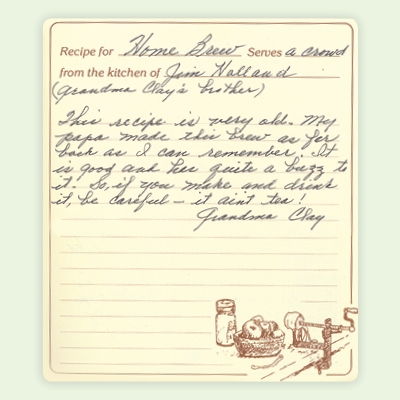 Recipe for Home Brew Serves a crowd
from the kitchen of Jim Holland
(Grandma Clay's brother)
This recipe is very old. My
papa made this brew as far
back as I can remember. It
is good and has quite a buzz to
it. So, if you make and drink
it, be careful – it aint tea!
Grandma Clay